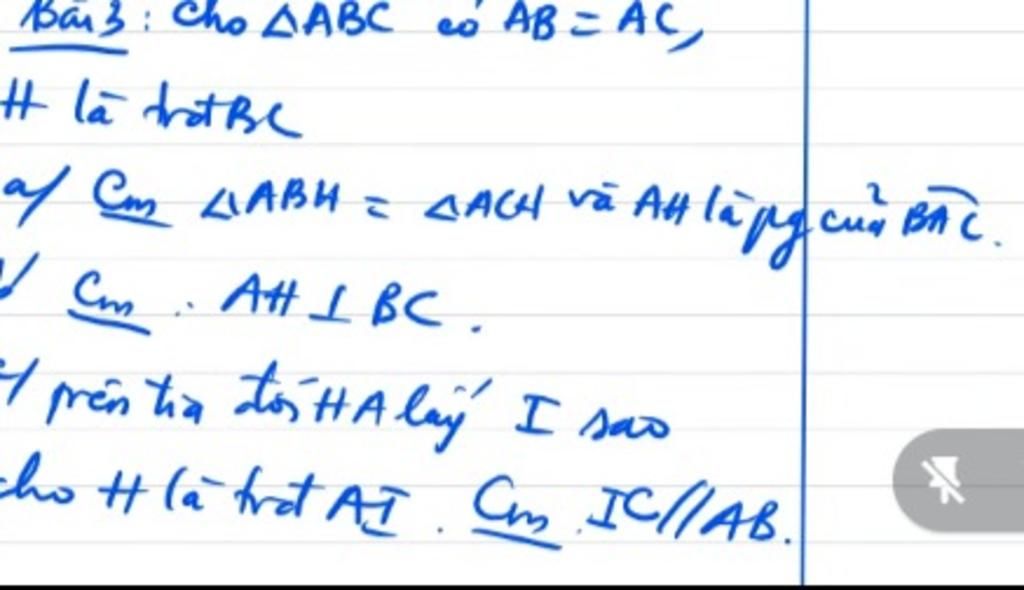 Bài 3: Cho △ABC có AB = AC,
H là trđ BC
a/ Cm △ABH = △ACH và AH là pg của BAC.
b/ Cm: AH ⊥ BC.
c/ trên tia đối HA lấy I sao
cho H là trđ AI. Cm IC // AB.